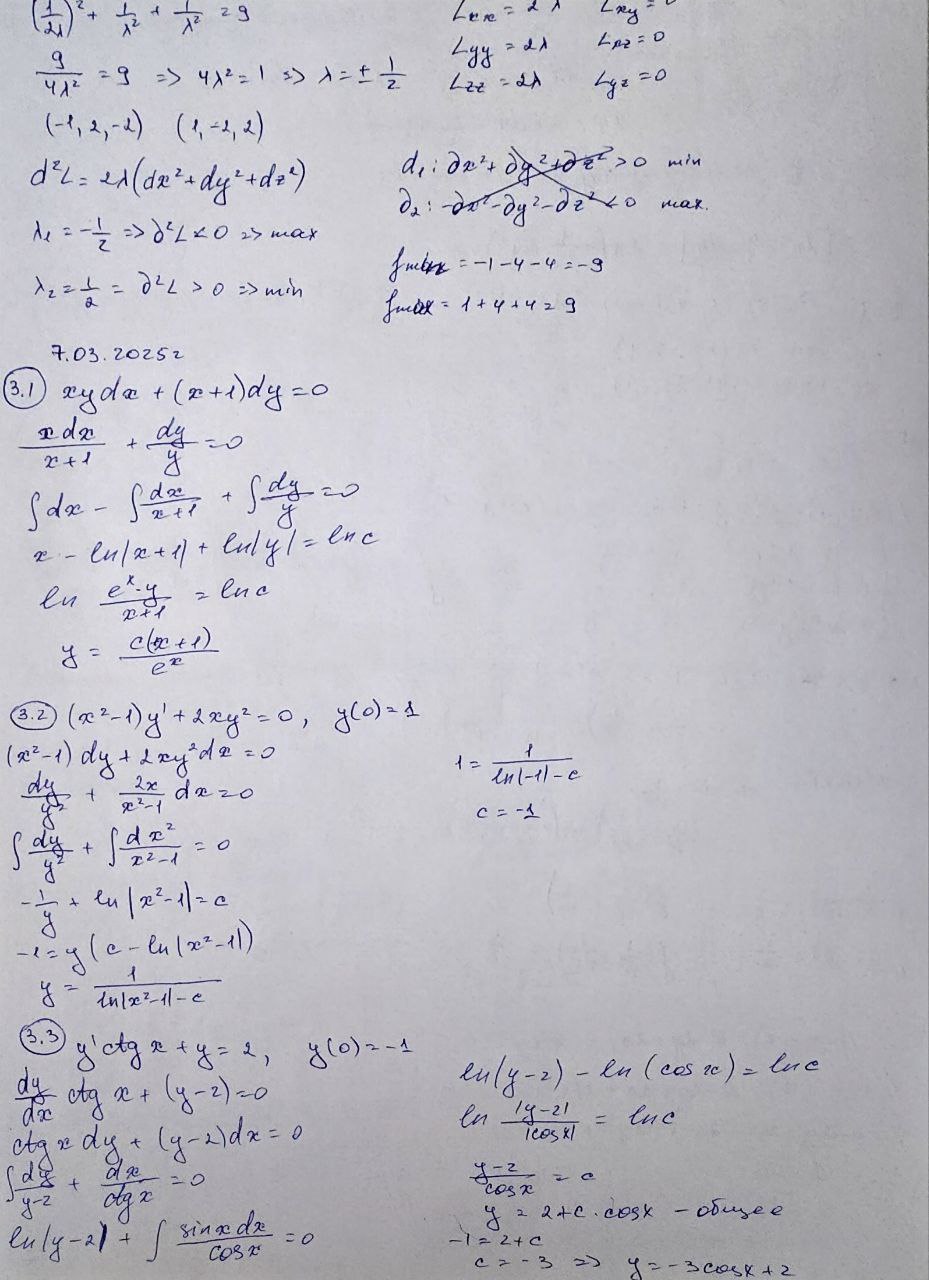 (1/2λ)² + 1/λ² + 1/λ² = 9
9/4λ² = 9 => 4λ² = 1 => λ = ± 1/2
(-1, 2, -2) (1, -2, 2)
d²L = 2λ(dx² + dy² + dz²)
λ₁ = -1/2 => ∂²L < 0 => max
λ₂ = 1/2 = ∂²L > 0 => min
Lxx = 2λ Lxy = 0
Lyy = 2λ Lxz = 0
Lzz = 2λ Lyz = 0
d₁: ∂x² + ∂y² + ∂z² > 0 min
∂₂: -∂x² - ∂y² - ∂z² < 0 max.
fmin = -1-4-4 = -9
fmax = 1+4+4 = 9
7.03.2025г
3.1 xydx + (x+1)dy = 0
xdx/x+1 + dy/y = 0
∫dx - ∫dx/x+1 + ∫dy/y = 0
x - ln|x+1| + ln|y| = ln c
ln eˣ·y/x+1 = ln c
y = c(x+1)/eˣ
3.2 (x²-1)y' + 2xy² = 0, y(0) = 1
(x²-1)dy + 2xy²dx = 0
dy/y² + 2x/x²-1 dx = 0
∫dy/y² + ∫dx²/x²-1 = 0
-1/y + ln|x²-1| = c
-1 = y(c - ln|x²-1|)
y = 1/ln|x²-1| - c
1 = 1/ln|-1| - c
c = -1
3.3 y'ctg x + y = 2, y(0) = -1
dy/dx ctg x + (y-2) = 0
ctg x dy + (y-2)dx = 0
∫dy/y-2 + dx/ctg x = 0
ln|y-2| + ∫ sinxdx/cosx = 0
ln(y-2) - ln(cos x) = ln c
ln |y-2|/|cosx| = ln c
y-2/cosx = c
y = 2+c·cosx - общее
-1 = 2+c
c = -3 => y = -3cosx + 2